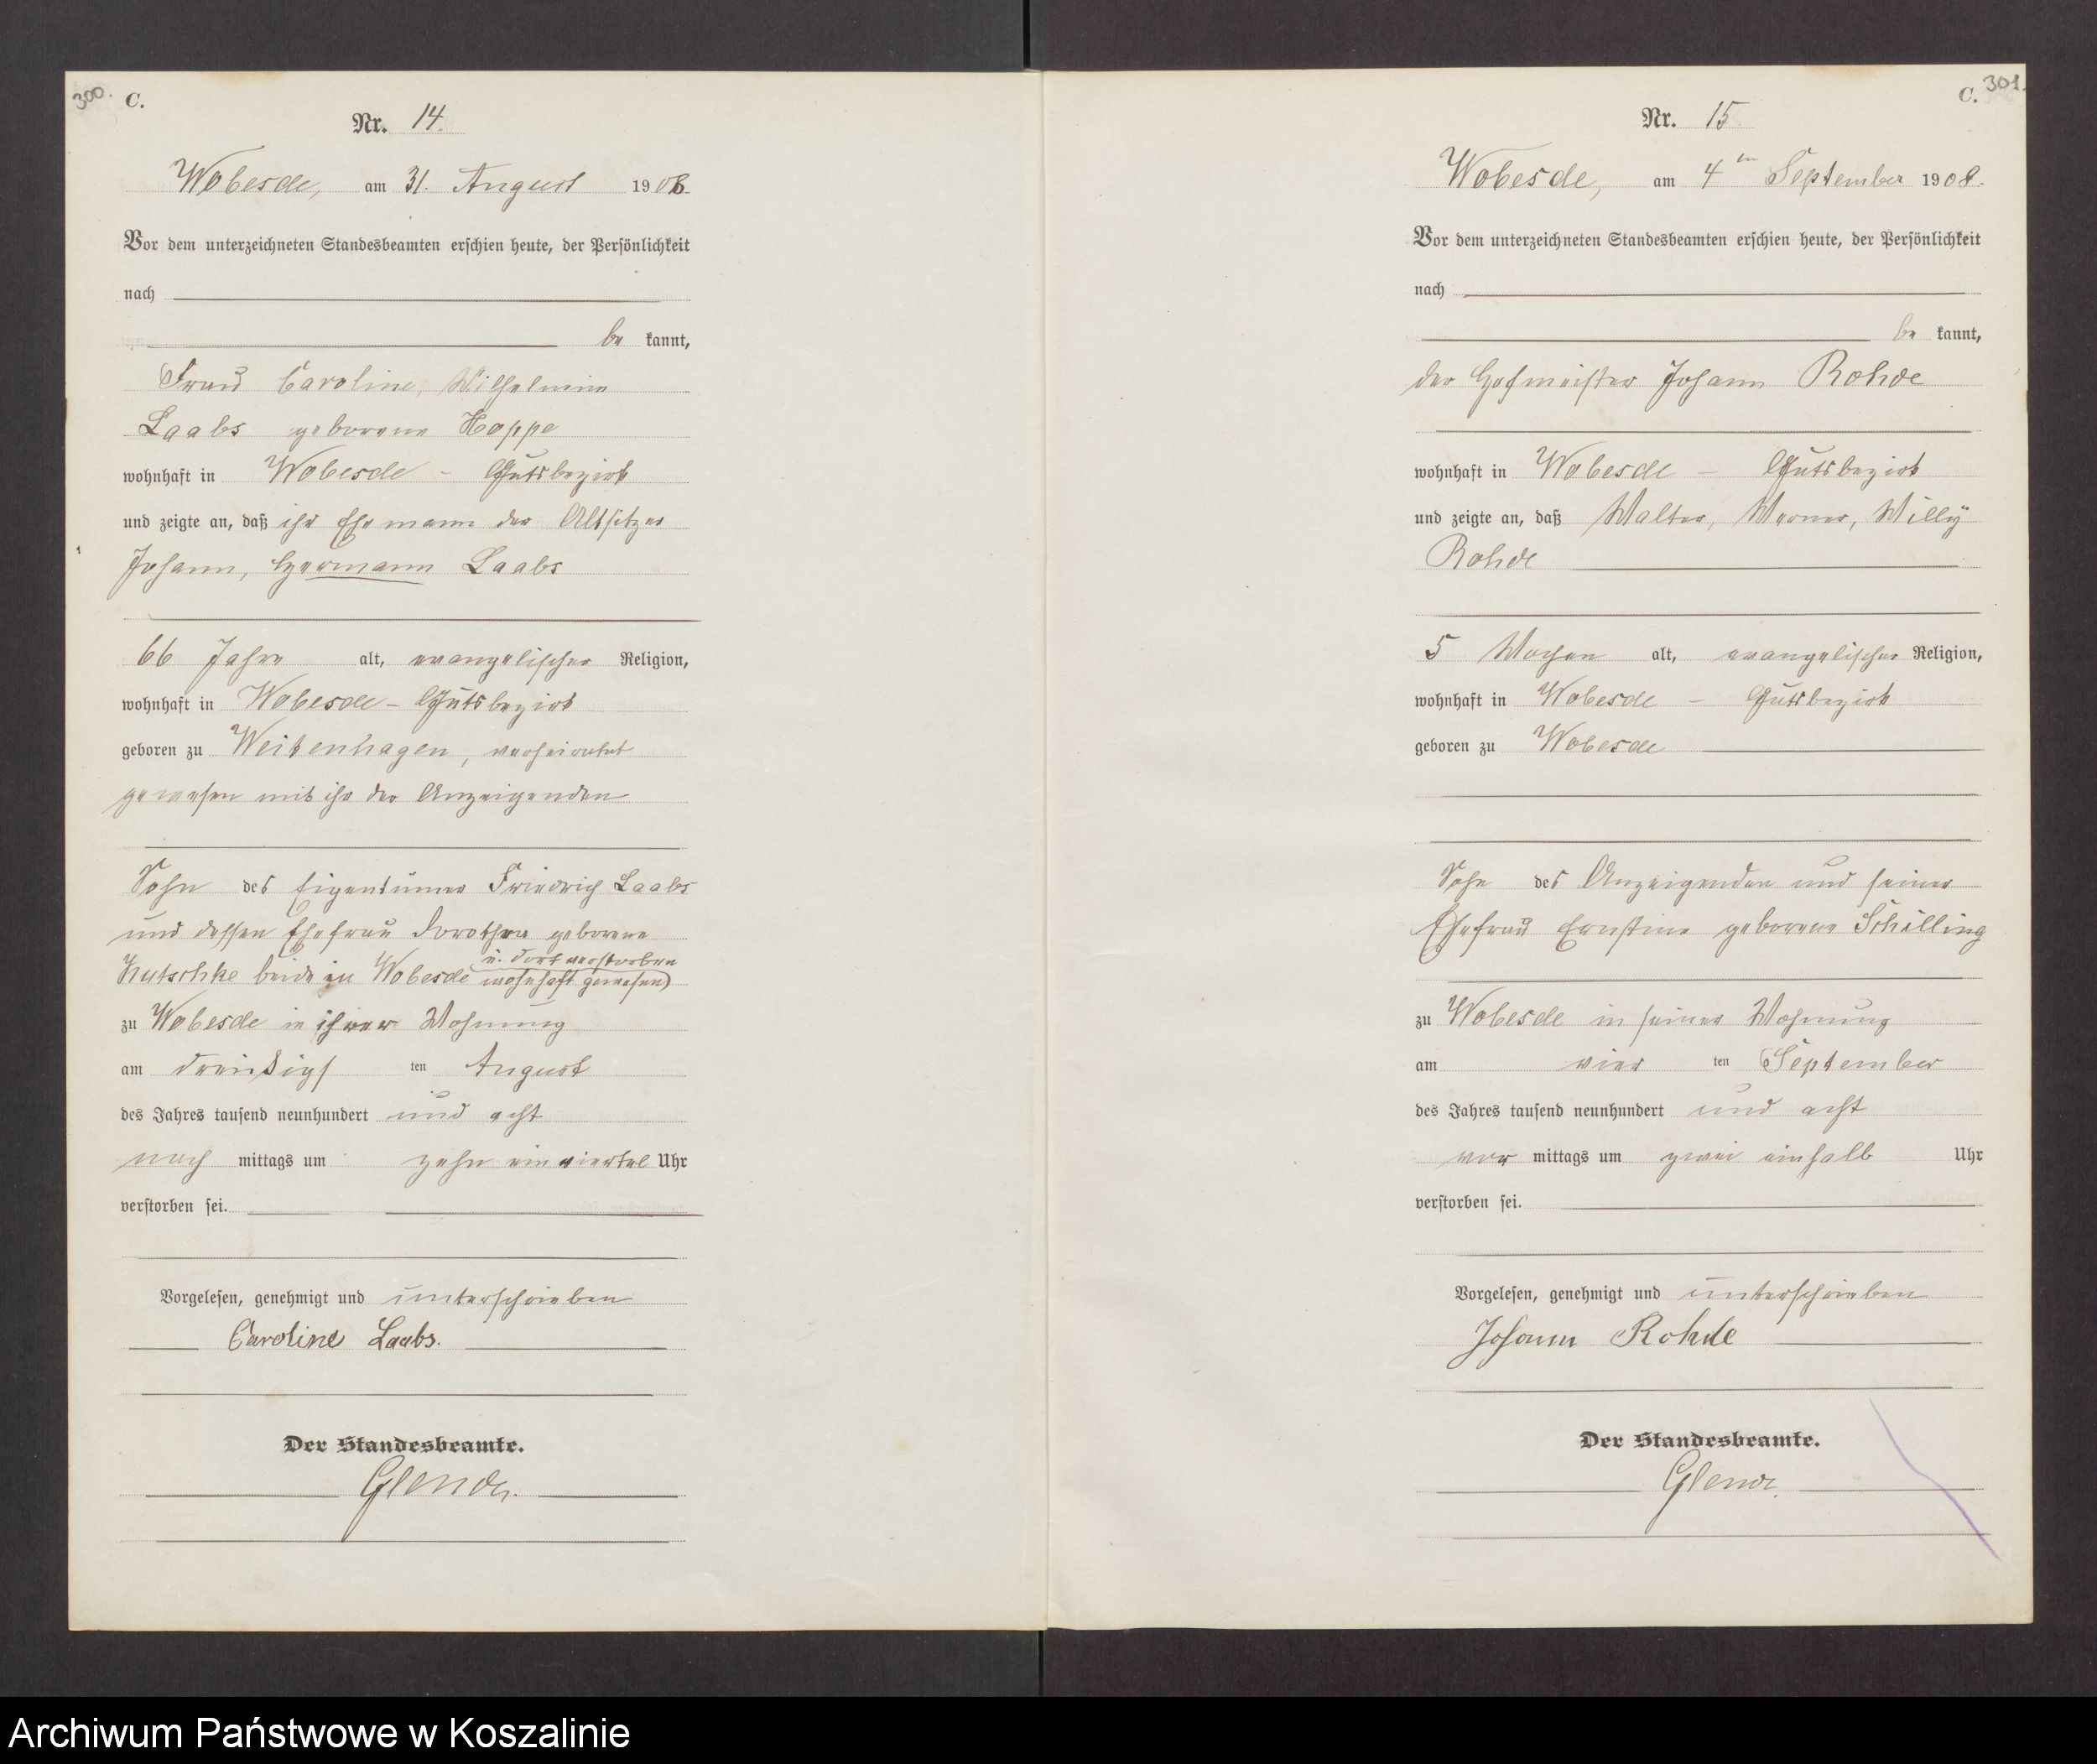 300.
C.
Nr. 14.
Wobesde, am 31. August 1908.
Vor dem unterzeichneten Standesbeamten erschien heute, der Persönlichkeit
nach
be kannt,
Frau Caroline, Wilhelmine
Laabs geborene Hoppe
wohnhaft in Wobesde - Gutsbezirk
und zeigte an, daß ihr Ehemann der Altsitzer
Johann, Hermann Laabs
66 Jahre alt, evangelischer Religion,
wohnhaft in Wobesde - Gutsbezirk
geboren zu Weitenhagen, verheiratet
gewesen mit ihr der Anzeigenden
Sohn des Eigentümer Friedrich Laabs
und dessen Ehefrau Dorothea geborene
u. dort verstorben
Kutschke beide zu Wobesde wohnhaft gewesen
zu Wobesde in ihrer Wohnung
am dreißigs ten August
des Jahres tausend neunhundert und acht
nach mittags um zehn einviertel Uhr
verstorben sei.
Vorgelesen, genehmigt und unterschrieben
Caroline Laabs.
Der Standesbeamte.
301.
C.
Nr. 15.
Wobesde, am 4ten September 1908.
Vor dem unterzeichneten Standesbeamten erschien heute, der Persönlichkeit
nach
be kannt,
der Hofmeister Johann Rohde
wohnhaft in Wobesde - Gutsbezirk
und zeigte an, daß Walter, Werner, Willy
Rohde
5 Wochen alt, evangelischer Religion,
wohnhaft in Wobesde - Gutsbezirk
geboren zu Wobesde
Sohn des Anzeigenden und seiner
Ehefrau Ernstine geborene Schilling
zu Wobesde in seiner Wohnung
am vier ten September
des Jahres tausend neunhundert und acht
vor mittags um zwei einhalb Uhr
verstorben sei.
Vorgelesen, genehmigt und unterschrieben
Johann Rohde
Der Standesbeamte.
Archiwum Państwowe w Koszalinie